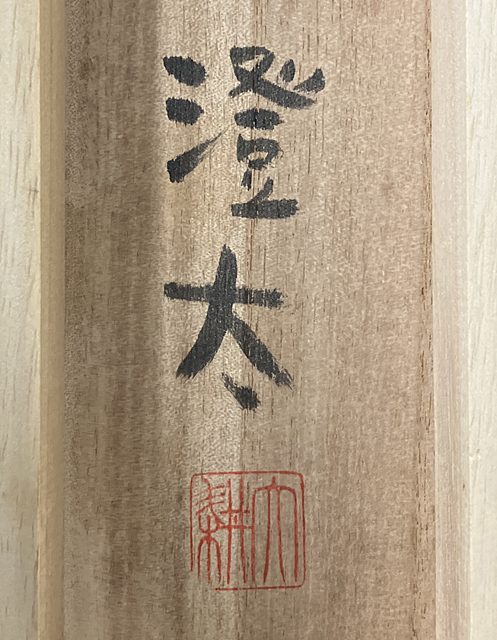 澄太
大耕